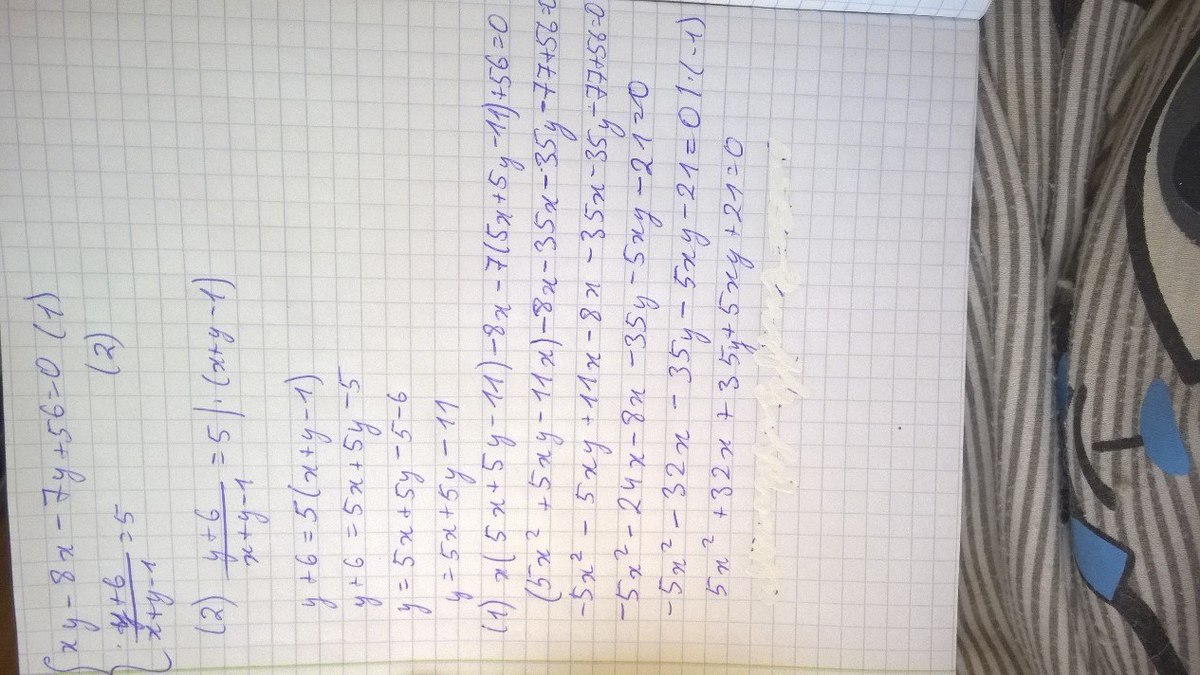 xy - 8x - 7y + 56 = 0 (1)
y+6/x+y-1 = 5 (2)
(2) y+6/x+y-1 = 5 | · (x+y-1)
y + 6 = 5(x+y-1)
y + 6 = 5x + 5y - 5
y = 5x + 5y - 5 - 6
y = 5x + 5y - 11
(1) x(5x + 5y - 11) - 8x - 7(5x + 5y - 11) + 56 = 0
(5x² + 5xy - 11x) - 8x - 35x - 35y - 77 + 56 =
-5x² - 5xy + 11x - 8x - 35x - 35y - 77 + 56 = 0
-5x² - 24x - 8x - 35y - 5xy - 21 = 0
-5x² - 32x - 35y - 5xy - 21 = 0 | · (-1)
5x² + 32x + 35y + 5xy + 21 = 0